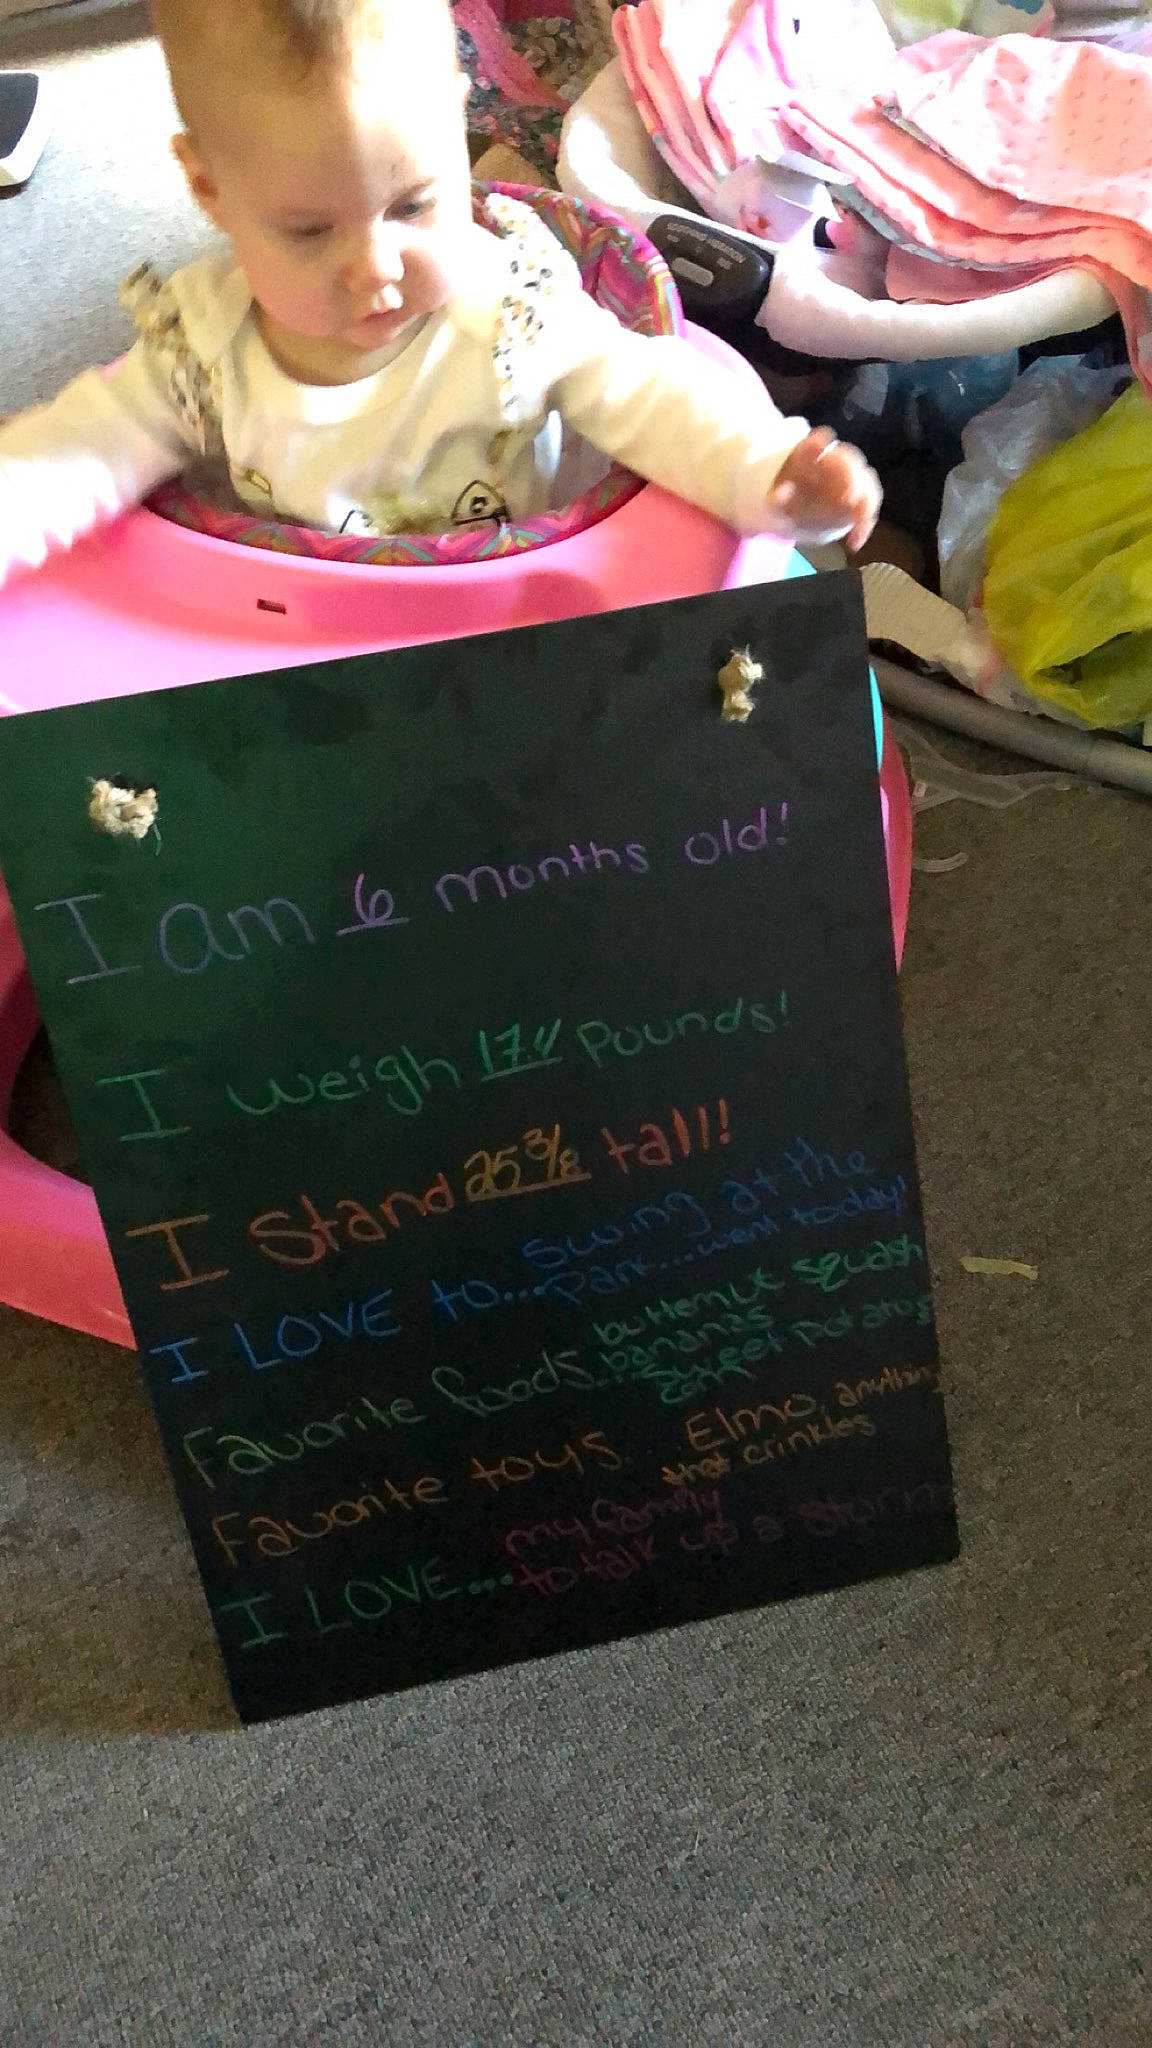 I am 6 months old!
I weigh 17.4 pounds!
I Stand 25 3/8 tall!
I LOVE to... swing at the
park... went today!
Favorite foods... butternut squash
bananas
sweet potatoes
corn
Favorite toys... Elmo, anything
that crinkles
I LOVE... my family
to talk up a storm